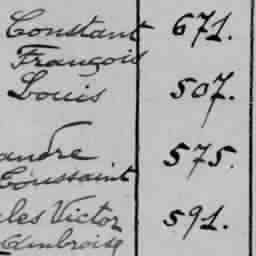 Constant 671.
François
Louis 507.
andre 575.
Toussaint
les Victor 591.
Ambroise